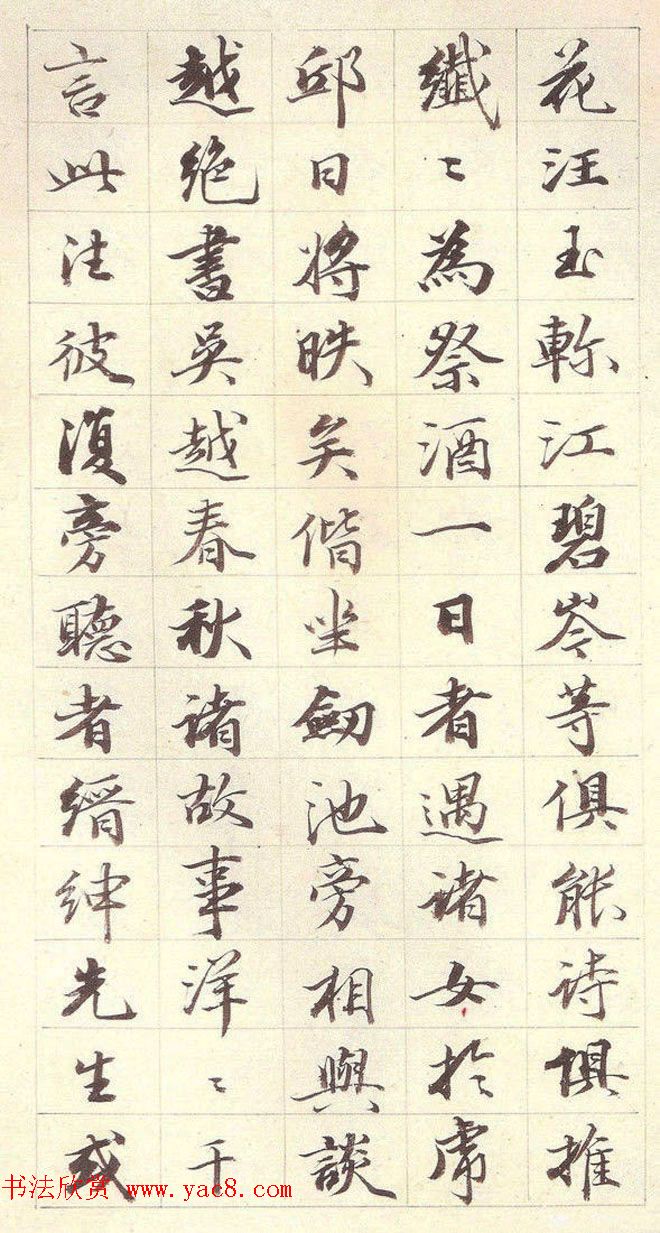 花汪玉軫江碧岑等俱能詩俱推
纖〻為祭酒一日者遇诸女於虎
邱日將昳矣偕坐劒池旁相與談
越絶書吳越春秋诸故事洋〻千
言此往彼復旁聽者縉紳先生或
书法欣赏 www.yac8.com